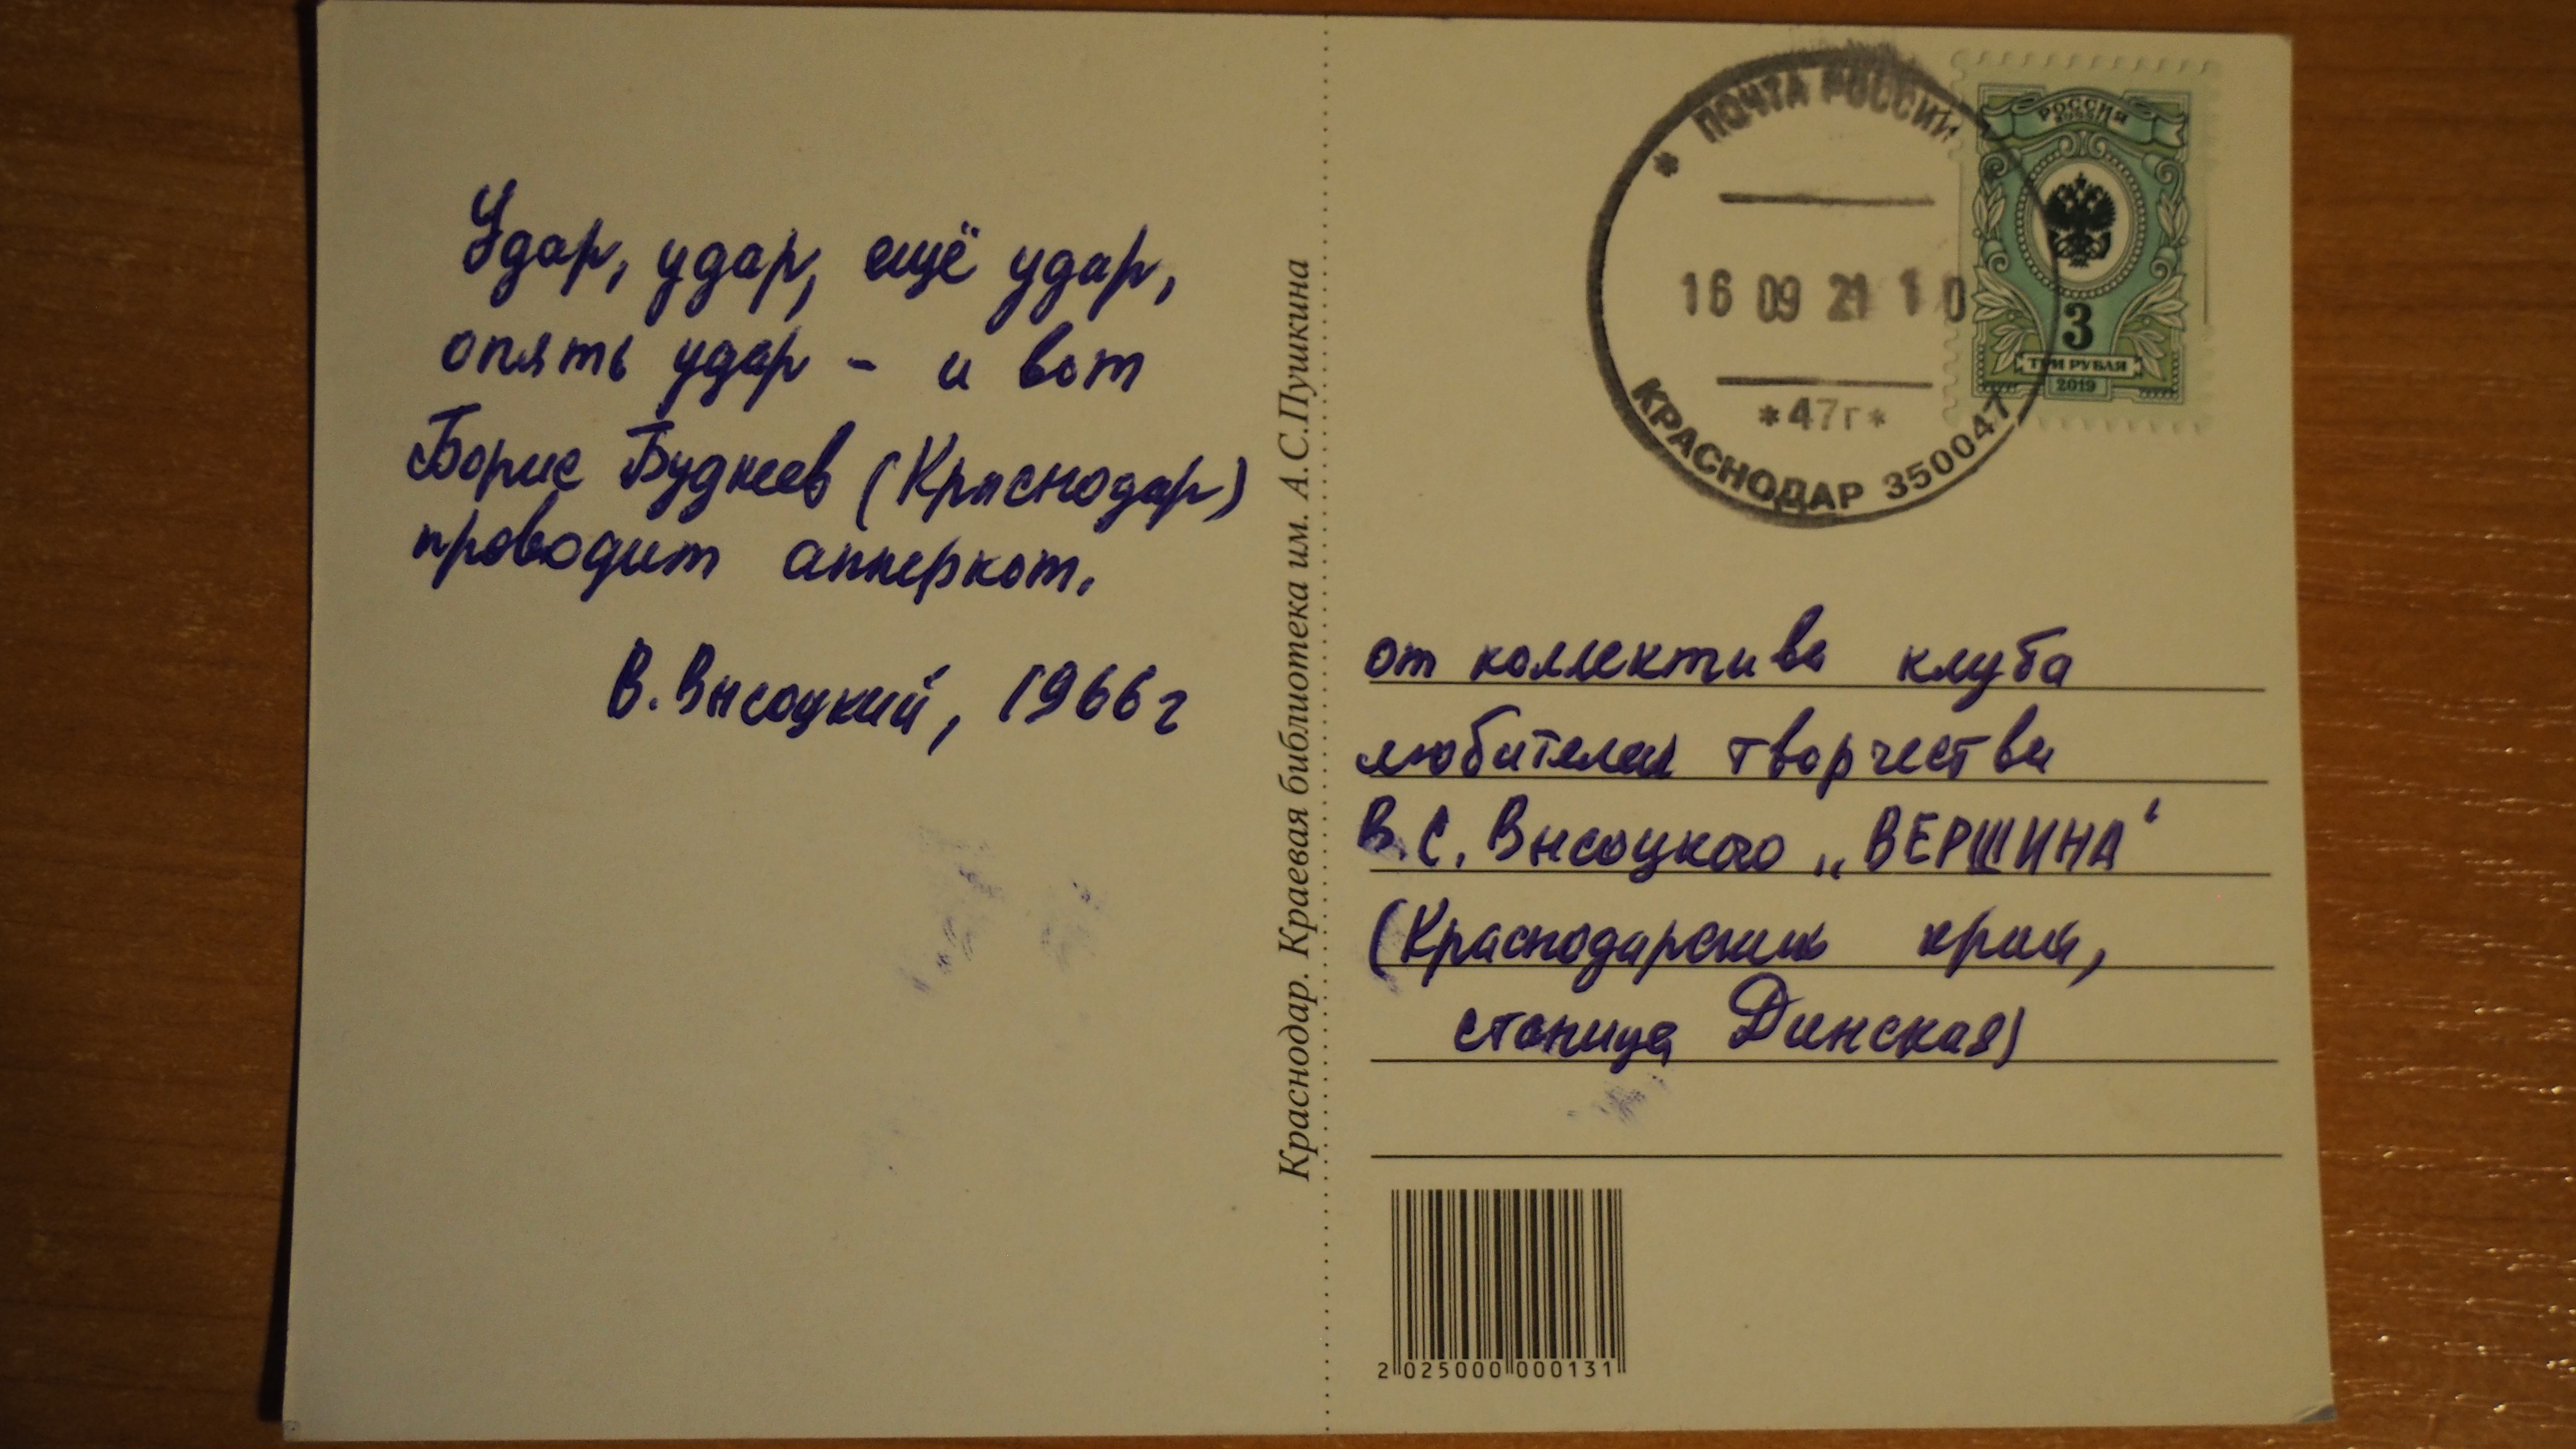 Удар, удар, ещё удар,
опять удар - и вот
Борис Будкеев (Краснодар)
проводит апперкот.
В. Высоцкий, 1966 г
Краснодар. Краевая библиотека им. А.С.Пушкина
* ПОЧТА РОССИИ
16 09 21 1 0
*47г*
КРАСНОДАР 350047
РОССИЯ
RUSSIA
3
ТРИ РУБЛЯ
2019
от коллектива клуба
любителей творчества
В.С. Высоцкого „ВЕРШИНА"
(Краснодарский край,
станица Динская)
2 025000 000131